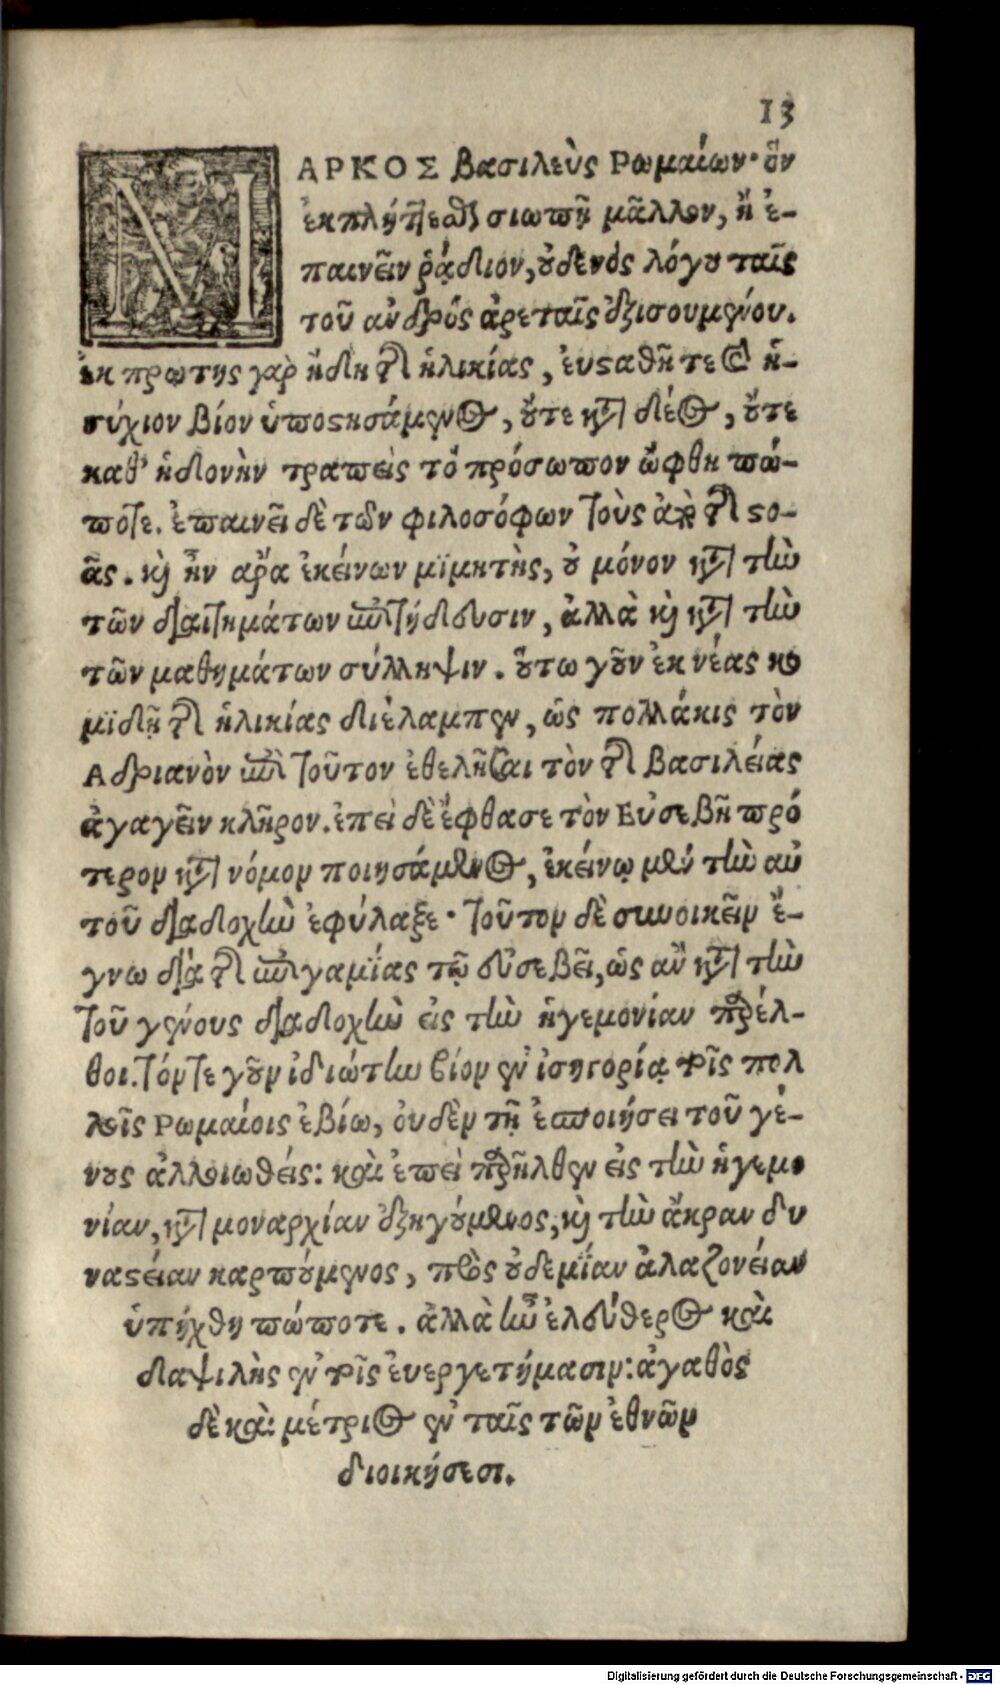 13
ΜΑΡΚΟΣ βασιλεὺς Ρωμαίων· ὃν
ἐκπλήττεσθαι σιωπῇ μᾶλλον, ἢ ἐ-
παινεῖν ῥᾴδιον, οὐδενὸς λόγου ταῖς
τοῦ ἀνδρὸς ἀρεταῖς ἐξισουμένου.
ἐκ πρώτης γὰρ ἤδη τῆς ἡλικίας, ἐυσταθῆ τε καὶ ἡ-
σύχιον βίον ὑποστησάμενος, οὔτε κατὰ δέος, οὔτε
καθ' ἡδονὴν τραπεὶς τὸ πρόσωπον ὤφθη πώ-
ποτε. ἐπαινεῖ δὲ τῶν φιλοσόφων τοὺς ἀπὸ τῆς στο-
ᾶς. καὶ ἦν ἄρα ἐκείνων μϊμητὴς, οὐ μόνον κατὰ τὴν
τῶν διαιτημάτων ἐπιτήδευσιν, ἀλλὰ καὶ κατὰ τὴν
τῶν μαθημάτων σύλληψιν. οὕτω γοῦν ἐκ νέας κο
μϊδῇ τῆς ἡλικίας διέλαμπεν, ὡς πολλάκις τὸν
Αδριανὸν ἐπὶ τοῦτον ἐθελῆσαι τὸν τῆς βασιλείας
ἀγαγεῖν κλῆρον. ἐπεὶ δὲ ἔφθασε τὸν Εὐσεβῆ πρό
τερον κατὰ νόμον ποιησάμενος, ἐκείνῳ μὲν τὴν αὐ
τοῦ διαδοχὴν ἐφύλαξε· τοῦτον δὲ συνοικεῖν ἔ-
γνω διὰ τῆς ἐπιγαμΐας τῷ ἐυσεβεῖ, ὡς ἂν κατὰ τὴν
τοῦ γένους διαδοχὴν εἰς τὴν ἡγεμονίαν παρέλ-
θοι. τόντε γοῦν ἰδιώτην βίον ἐν ἰσηγορίᾳ τοῖς πολ
λοῖς Ρωμαίοις ἐβίω, οὐδὲν τῇ ἐσποιήσει τοῦ γέ-
νους ἀλλοιωθείς: καὶ ἐπεὶ παρῆλθεν εἰς τὴν ἡγεμο
νίαν, κατὰ μοναρχίαν ἐξηγούμενος, καὶ τὴν ἄκραν δυ
ναστείαν καρπούμενος, πρὸς οὐδεμΐαν ἀλαζονείαν
ὑπήχθη πώποτε. ἀλλὰ ἦν ἐλεύθερος καὶ
δαψιλὴς ἐν τοῖς ἐυεργετήμασιν: ἀγαθὸς
δὲ καὶ μέτριος ἐν ταῖς τῶν ἐθνῶν
διοικήσεσι.
Digitalisierung gefördert durch die Deutsche Forschungsgemeinschaft - DFG